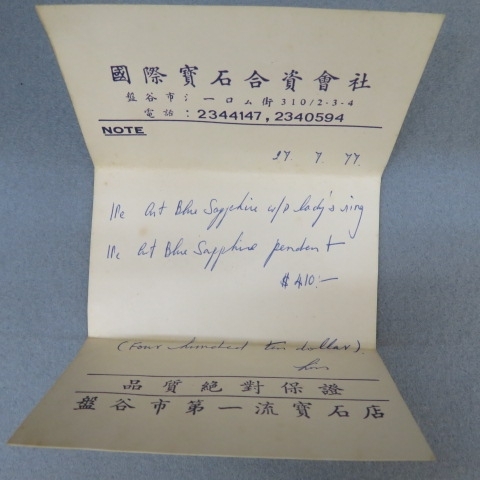 國際寶石合資會社
盤谷市 一口ム街 310/2-3-4
電話 : 2344147, 2340594
NOTE
27. 7. 77.
1Pc Art Blue Sapphire w/p lady's ring
1Pc Art Blue Sapphire pendant
$ 410.—
(Four hundred ten dollar)
品質絕對保證
盤谷市第一流寶石店